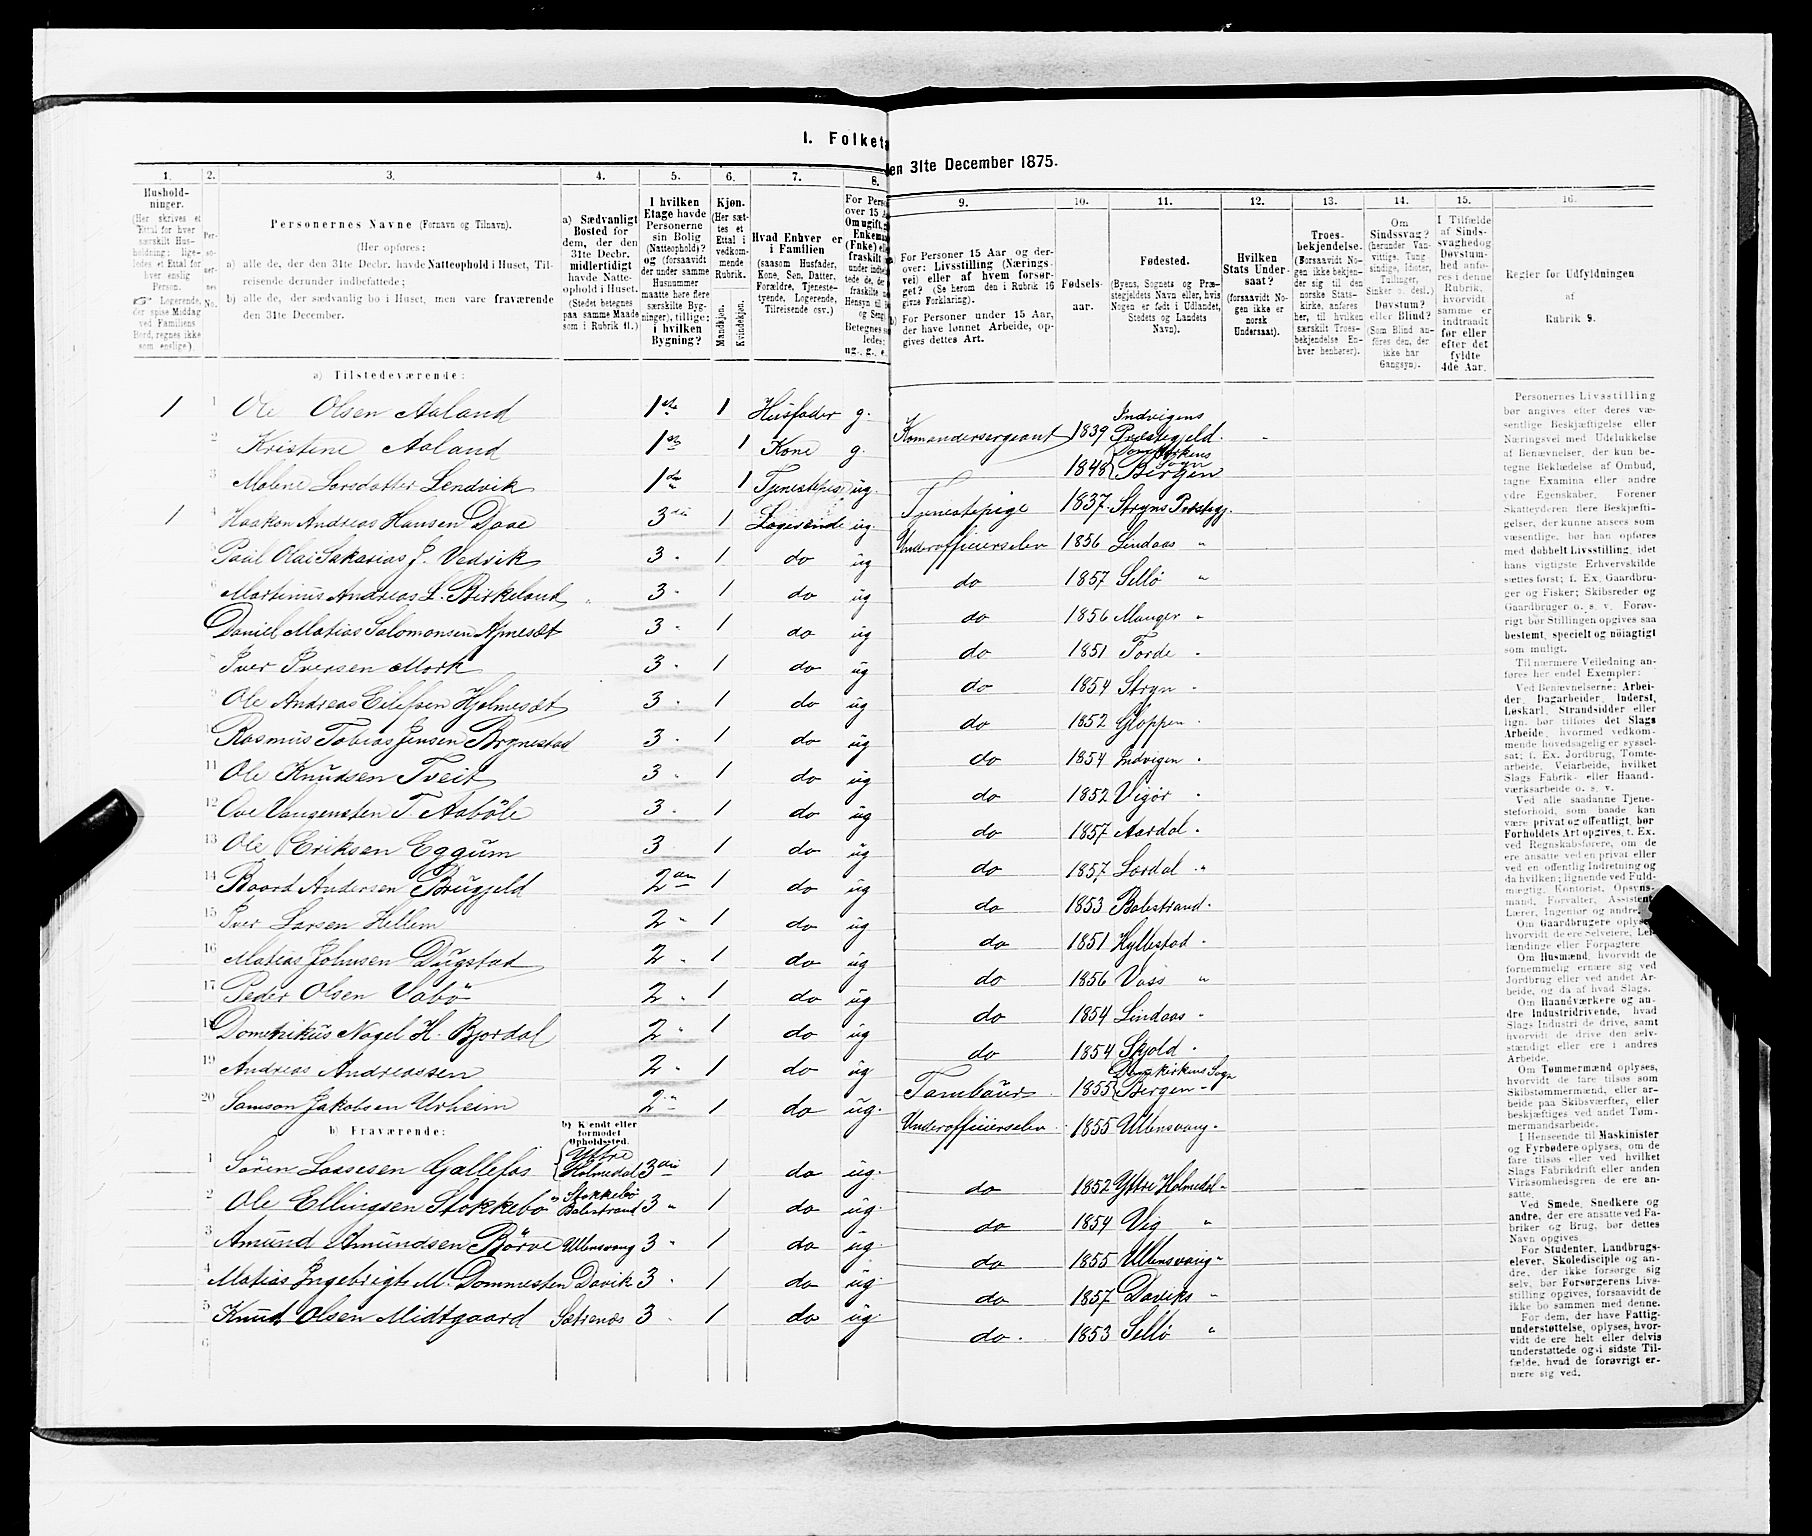 I. Folketa
en 31te December 1875.
1. 2. 3. 4. 5. 6. 7. 8. 9. 10. 11. 12. 13. 14. 15. 16.
Husholdninger. (Her skrives et Ettal for hver særskilt Husholdning; ligeledes et Ettal for hver enslig Person. ☞ Logerende, der spise Middag ved Familiens Bord, regnes ikke som enslige).
Personernes No.
Personernes Navne (Fornavn og Tilnavn).
(Her opføres:
a) alle de, der den 31te Decbr. havde Natteophold i Huset, Tilreisende derunder indbefattede;
b) alle de, der sædvanlig bo i Huset, men vare fraværende den 31te December.
a) Sædvanligt Bosted for dem, der den 31te Decbr. midlertidigt havde Natteophold i Huset. (Stedet betegnes paa samme Maade som i Rubrik 11.)
I hvilken Etage havde Personerne sin Bolig (Natteophold)? og (forsaavidt der under samme Husnummer maatte høre flere særskilte Bygninger), tillige: i hvilken Bygning?
Kjøn. (Her sættes et Ettal i vedkommende Rubrik. Mandkjøn. Kvindekjøn.
Hvad Enhver er i Familien (saasom Husfader, Kone, Søn, Datter, Forældre, Tjenestetyende, Logerende, Tilreisende osv.)
For Perso over 15 A Om ugift, g Enkema (Enke) el fraskilt
Betegnes ledes: ug., g., e.
a) For Personer 15 Aar og derover: Livsstilling (Næringsvei) eller af hvem forsørget? (Se herom den i Rubrik 16 givne Forklaring).
b) For Personer under 15 Aar, der have lønnet Arbeide, opgives dettes Art.
Fødselsaar.
Fødested. (Byens, Sognets og Præstegjeldets Navn eller, hvis Nogen er født i Udlandet, Stedets og Landets Navn).
Hvilken Stats Undersaat? (forsaavidt Nogen ikke er norsk Undersaat).
Troesbekjendelse. (Forsaavidt Nogen ikke bekjender sig til den norske Statskirke, anføres her, til hvilken særskilt Troesbekjendelse Enhver henhører).
Om Sindssvag? (herunder Vanvittige, Tungsindige, Idioter, Tullinger, Sinker o. desl.) Døvstum? eller Blind? (Som Blind anføres den, der ikke har Gangsyn).
I Tilfælde af Sindssvaghed og Døvstumhed anføres i denne Rubrik, hvorvidt samme er indtraadt før eller efter det fyldte 4de Aar.
Regler for Udfyldningen af Rubrik 9.
a) Tilstedeværende:
1 1 Ole Olsen Aaland 1ste 1 Husfader g. Komandersergeant 1839 Indvigens Præstegjeld.
2 Kristine Aaland 1ste 1 Kone g. 1848 Domkirkens Sogn Bergen
3 Malene Larsdatter Lendvik 1ste 1 Tjenestepige ug. Tjenestepige 1837 Stryns Præstegj.
1 4 Haakon Andreas Hansen Daae 3die 1 Logerende ug. Underofficierselev 1856 Lindaas "
5 Paul Olai Sakarias J. Vedvik 3 " 1 do ug do 1857 Sellø "
6 Martinus Andreas L. Birkeland 3 " 1 do ug do 1856 Manger "
Daniel Matias Salomonsen 3 " 1 do ug do 1851 Førde "
8 Iver Iversen Mork 3 " 1 do ug do 1854 Stryn "
9 Ole Andreas Eilefsen Hjelmesæt 3 " 1 do ug do 1852 Gloppen "
10 Rasmus Tobias Jensen Brynestad 3 " 1 do ug do 1854 Indvigen "
11 Ole Knudsen Tveit 3 " 1 do ug do 1852 Vigør "
12 Ove Vangensten T. Aabøle 3 " 1 do ug do 1857 Aardal "
13 Ole Eriksen Eggum 3 1 do ug do 1857 Lærdal "
14 Baard Andersen Brugjeld 2den 1 do ug do 1853 Balestrand "
15 Iver Larsen Hellem 2 " 1 do ug do 1851 Hyllestad "
16 Matias Johnsen Dugstad 2 " 1 do ug do 1856 Voss "
17 Peder Olsen Vabø 2 " 1 do ug do 1854 Lindaas "
18 Domenikus Nagel H. Bjordal 2 " 1 do ug do 1854 Skjold "
19 Andreas Andreassen 2 " 1 do ug Tambour 1855 Domkirkens Sogn Bergen "
20 Samson Jakobsen Urheim 2 " 1 do ug. Underofficierselev 1855 Ullensvang "
b) Fraværende:
b) Kjendt eller formodet Opholdssted.
1 Sören Lassesen Gallefos Yttre Holmedal 3die 1 do ug. do 1852 Yttre Holmedal "
2 Ole Ellingsen Stokkebø Stokkebö Balestrand 3 " 1 do ug. do 1854 Vig "
3 Amund Amundsen Börve Ullensvang 3 " 1 do ug. do 1855 Ullensvang "
4 Matias Ingebrigt M. Dommesten Davik 3 " 1 do ug. do 1857 Daviks "
5 Knud Olsen Midtgaard Sætrenæs 3 " 1 do ug. do. 1853 Sellø "
6
Personernes Livsstilling bør angives efter deres væsentlige Beskjæftigelse eller Næringsvei med Udelukkelse af Benævnelser, der kun betegne Beklædelse af Ombud, tagne Examina eller andre ydre Egenskaber. Forener Skatteyderen flere Beskjæftigelser, der kunne ansees som væsentlige, bør han opføres med dobbelt Livsstilling, idet hans vigtigste Erhvervskilde sættes først; f. Ex. Gaardbruger og Fisker; Skibsreder og Gaardbruger o. s. v. Forøvrigt bør Stillingen opgives saa bestemt, specielt og nöiagtigt som muligt.
Til nærmere Veiledning anføres her endel Exempler:
Ved Benævnelserne: Arbeider, Dagarbeider, Inderst, Løskarl, Strandsidder eller lign. bør tilføies det Slags Arbeide, hvormed vedkommende hovedsagelig er sysselsat; f. Ex. Jordbrug, Tomtearbeide, Veiarbeide, hvilket Slags Fabrik- eller Haandværksarbeide o. s. v.
Ved alle saadanne Tjenesteforhold, som baade kan være privat og offentligt, bør Forholdets Art opgives, f. Ex. ved Regnskabsførere, om de ere ansatte ved en privat eller ved en offentlig Indretning og da hvilken; lignende ved Fuldmægtig, Kontorist, Opsynsmand, Forvalter, Assistent, Lærer, Ingeniør og andre.
Om Gaardbrugere oplyses, hvorvidt de ere Selveiere, Leilændinge eller Forpagtere
Om Husmænd, hvorvidt de fornemmelig ernære sig ved Jordbrug eller ved andet Arbeide, og da af hvad Slags.
Om Haandværkere og andre Industridrivende, hvad Slags Industri de drive, samt hvorvidt de drive den selvstændigt eller ere i andres Arbeide.
Om Tømmermænd oplyses, hvorvidt de fare tilsøs som Skibstømmermænd, eller arbeide paa Skibsværfter, eller beskjæftiges ved andet Tømmermandsarbeide.
I Henseende til Maskinister og Fyrbødere oplyses, om de fare tilsøs eller ved hvilket Slags Fabrikdrift eller anden Virksomhedsgren de ere ansatte.
Ved Smede, Snedkere og andre, der ere ansatte ved Fabriker og Brug, bør dettes Navn opgives.
For Studenter, Landbrugselever, Skoledisciple og andre, der ikke forsørge sig selv, bør Forsørgerens Livsstilling opgives, forsaavidt de ikke bo sammen med denne.
For dem, der have Fattigunderstøttelse, oplyses, hvorvidt de ere helt eller delvis understøttede og i sidste Tilfælde, hvad de forøvrigt ernære sig ved.